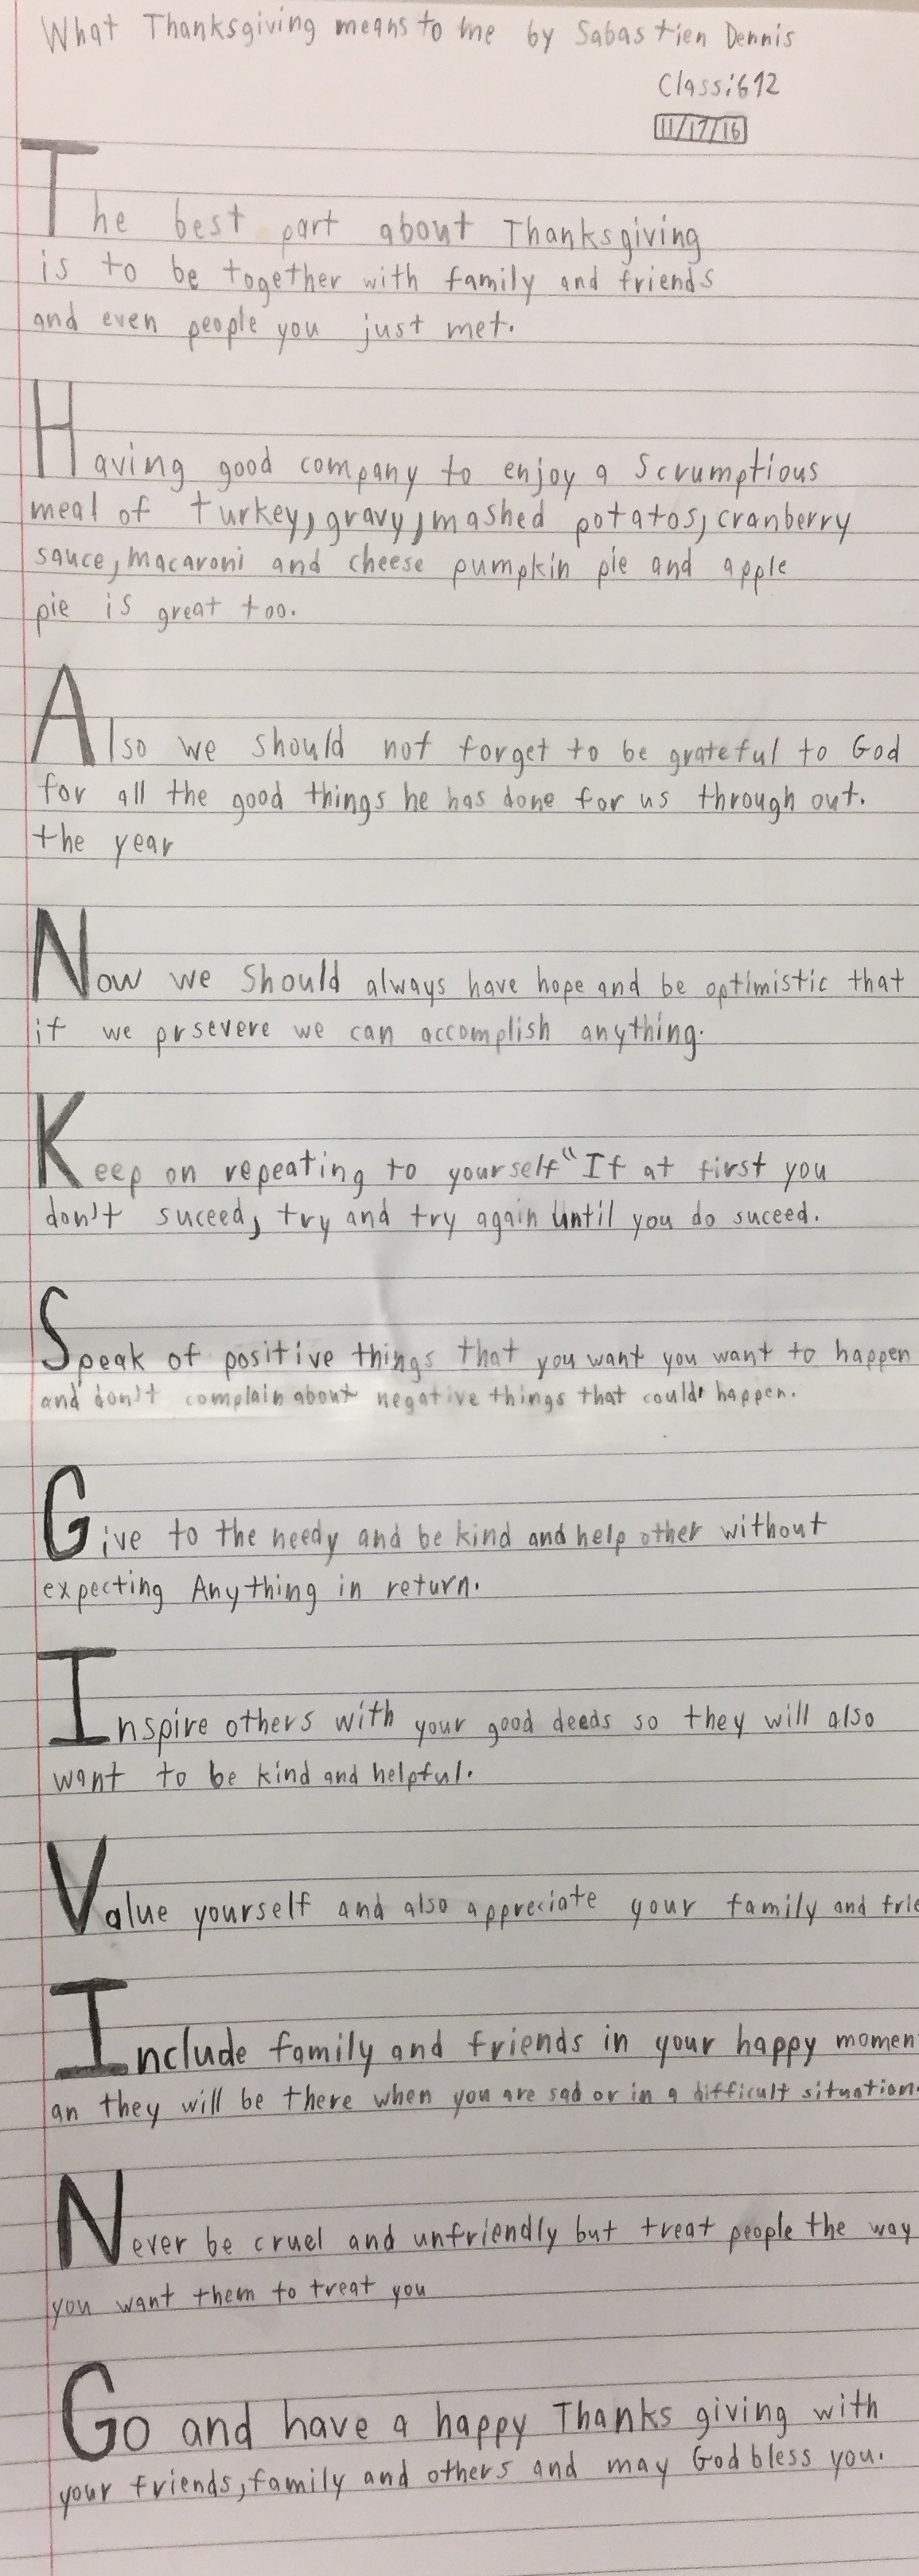 What Thanksgiving means to me by Sabastien Dennis
Class:612
11/17/16
The best part about Thanksgiving
is to be together with family and friends
and even people you just met.
Having good company to enjoy a Scrumptious
meal of turkey, gravy, mashed potatos, cranberry
sauce, macaroni and cheese pumpkin pie and apple
pie is great too.
Also we should not forget to be grateful to God
for all the good things he has done for us through out.
the year
Now we Should always have hope and be optimistic that
if we prsevere we can accomplish anything.
Keep on repeating to yourself "If at first you
don't suceed, try and try again until you do suceed.
Speak of positive things that you want you want to happen
and don't complain about negative things that could happen.
Give to the needy and be kind and help other without
expecting Anything in return.
Inspire others with your good deeds so they will also
want to be kind and helpful.
Value yourself and also appreciate your family and
Include family and friends in your happy
an they will be there when you are sad or in a difficult situation.
Never be cruel and unfriendly but treat people the way
you want them to treat you
Go and have a happy Thanks giving with
your friends, family and others and may God bless you.